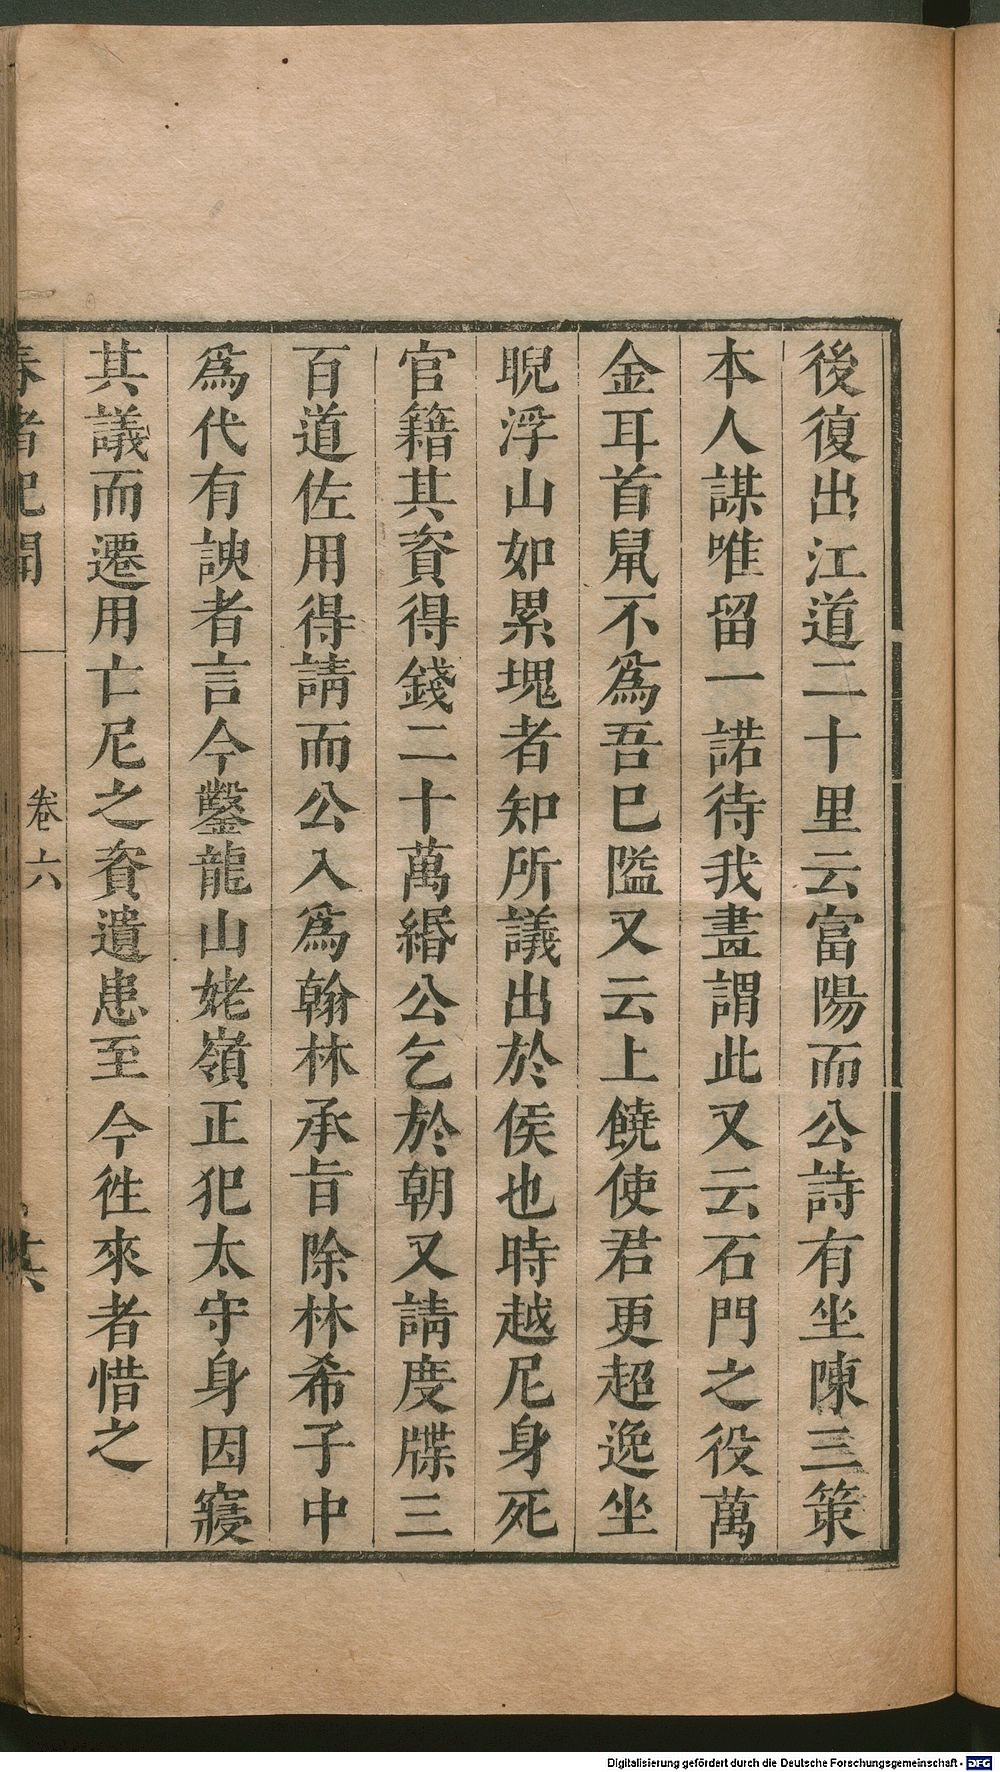 後復出江道二十里云富陽而公詩有坐陳三策
本人謀唯留一諾待我畫謂此又云石門之役萬
金耳首鼠不爲吾已隘又云上饒使君更超逸坐
睨浮山如累塊者知所議出於侯也時越尼身死
官籍其資得錢二十萬緡公乞於朝又請度牒三
百道佐用得請而公入爲翰林承旨除林希子中
爲代有諛者言今鑿龍山姥嶺正犯太守身因寢
其議而遷用亡尼之資遺患至今徃來者惜之
春渚紀聞
卷六
Digitalisierung gefördert durch die Deutsche Forschungsgemeinschaft - DFG